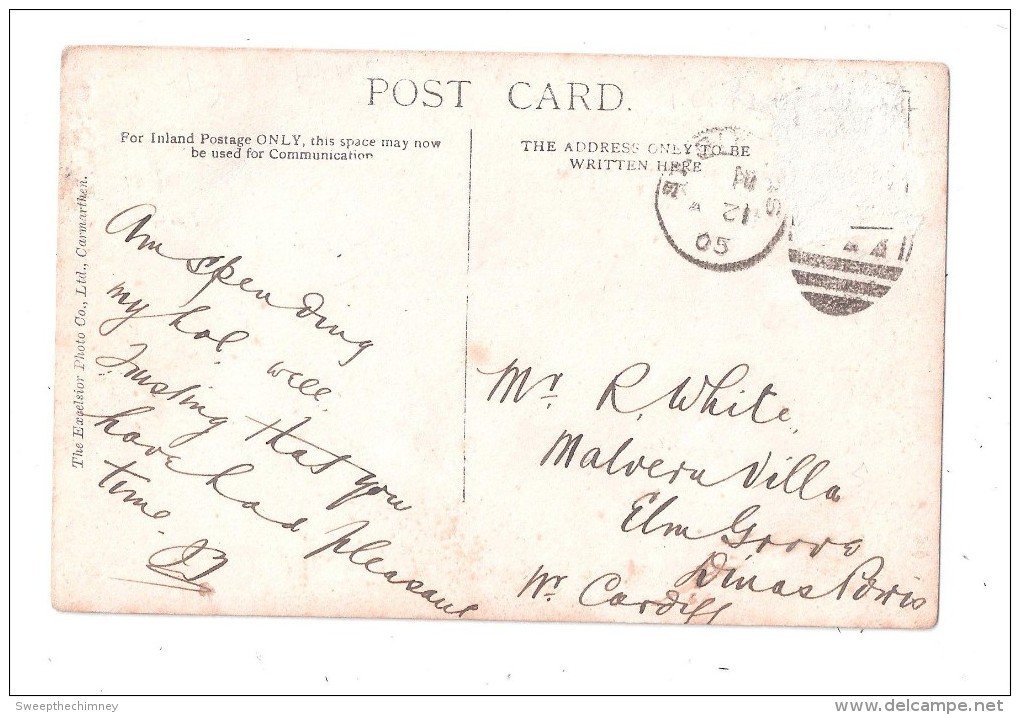 POST CARD.
For Inland Postage ONLY, this space may now
be used for Communication
THE ADDRESS ONLY TO BE
WRITTEN HERE
The Excelsior Photo Co., Ltd., Carmarthen.
12
05
Am spending
my hol. well.
Trusting that you
have had pleasant
time.
Mr. R. White,
Malvern Villa
Elm Grove
Dinas Powis
Nr. Cardiff
Sweepthechimney
www.delcampe.net